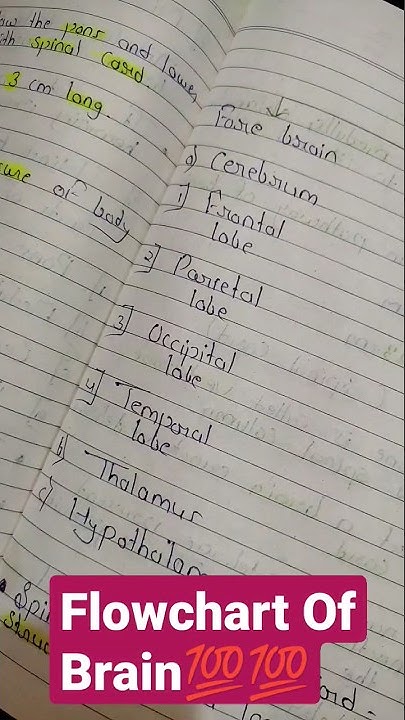 low the pons and lower
ith spinal cord.
3 cm long.
ure of body
Fore brain
a) Cerebrum
1] Frontal
lobe
2] Parietal
lobe
3] Occipital
lobe
4] Temporal
lobe
b) Thalamus
c) Hypothalam
Spi
Struc
ord-
Flowchart Of
Brain💯💯